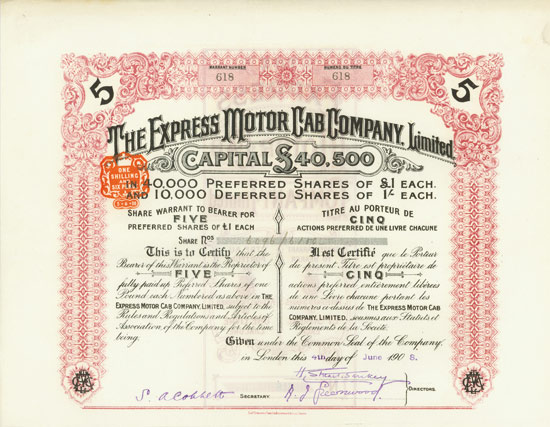 WARRANT NUMBER NUMÉRO DU TITRE
618 618
5 5
THE EXPRESS MOTOR CAB COMPANY, Limited.
CAPITAL £40,500
ONE
SHILLING
AND
SIX PENCE
IN 40,000 PREFERRED SHARES OF £1 EACH.
AND 10,000 DEFERRED SHARES OF 1/- EACH.
SHARE WARRANT TO BEARER FOR
FIVE
PREFERRED SHARES OF £1 EACH
TITRE AU PORTEUR DE
CINQ
ACTIONS PREFERRED DE UNE LIVRE CHACUNE
SHARE Nos
This is to Certify that the
Bearer of this Warrant is the Proprietor of
FIVE
fully paid up Preferred Shares of One
Pound each Numbered as above in THE
EXPRESS MOTOR CAB COMPANY, LIMITED, subject to the
Rules and Regulations and Articles of
Association of the Company for the time
being.
Il est Certifié que le Porteur
du present Titre est propriétaire de
CINQ
actions preferred entièrement libérées
de une Livre chacune portant les
numeros ci-dessus de THE EXPRESS MOTOR CAB
COMPANY, LIMITED, soumises aux Statuts et
Règlements de la Société.
Given under the Common Seal of the Company,
in London this 4th day of June 1908.
SECRETARY.
DIRECTORS.